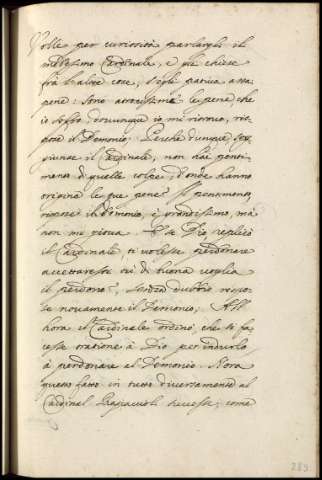 Volle per curiosità parlargli il
medesimo Cardinale, e gli chiese
frà l'altre cose, s'egli pativa assai
pene: sono atrocissime le pene, che
io soffro, dovunque io mi ritrovo, ris-
pose il Demonio; Perche dunque, sog-
giunse il Cardinale, non hai penti-
mento di quelle colpe, d'onde hanno
origine le tue pene? Il pentimento,
rispose il demonio, è grandissimo, mà
non mi giova. E se Dio replicò
il Cardinale, ti volesse perdonare
accettaresti tù di buona voglia
il perdono? senza dubbio rispo-
se novamente il Demonio; All
hora il Cardinale ordinò, che si fa-
cesse oratione à Dio per indurlo
à perdonare il Demonio. Hora
questo fatto in tutto diversamente al
Cardinal successe; come
289